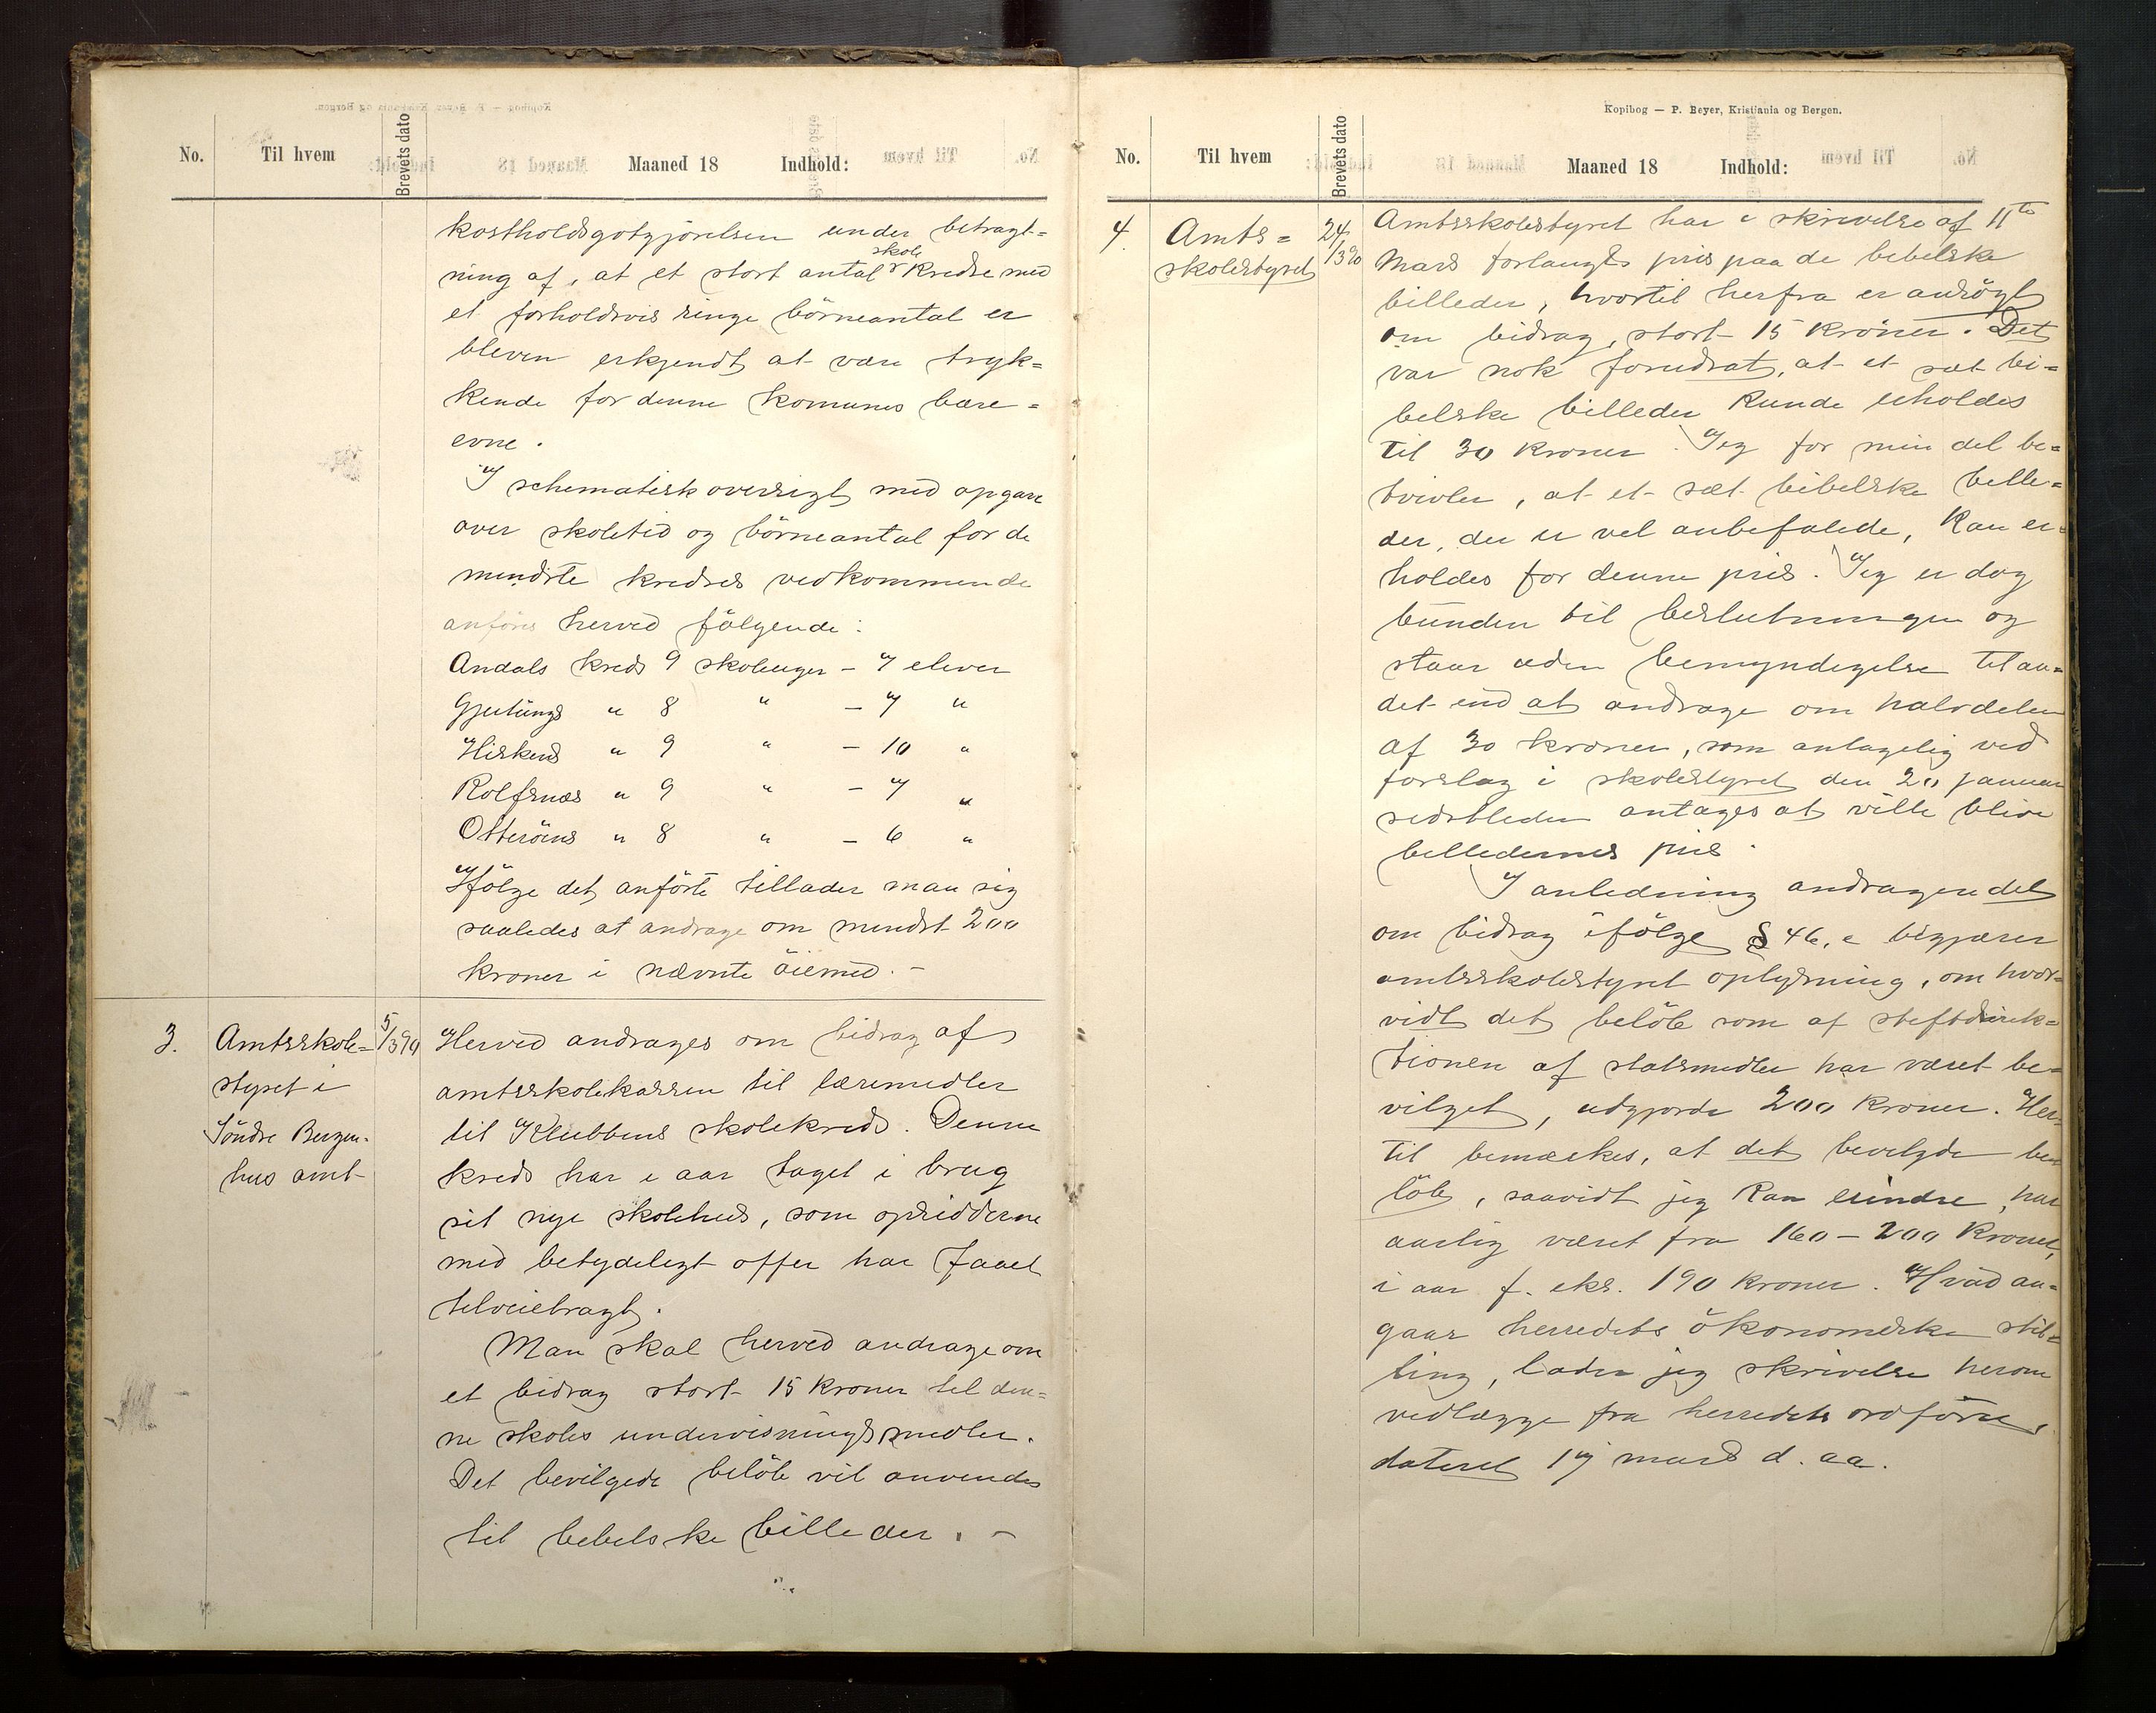 No. Til hvem Brevets dato Maaned 18 Indhold:
kostholdsgotgjörelsen under betragt=
ning af, at et stort antal skole kredse med
et forholdsvis ringe börneantal er
bleven erkjendt at være tryk=
kende for denne komunes bære=
evne.
I schematisk oversigt med opgave
over skoletid og börneantal for de
mindste kredses vedkommende
anföres herved fölgende:
Andals kreds 9 skoleuger – 7 elever
Gjertungs " 8 " – 7 "
Hiskens " 9 " – 10 "
Rolfsnæs " 9 " – 7 "
Otteröens " 8 " – 6 "
Ifölge det anförte tillader man sig
saaledes at andrage om mindst 200
kroner i nævnte öiemed. –
3. Amtsskole=
styret i
Söndre Bergen-
hus amt
5/3 90
Herved andrages om bidrag af
amtsskolekassen til læremidler
til Klubbens skolekreds. Denne
kreds har i aar taget i brug
sit nye skolehus, som opsidderne
med betydeligt offer har faaet
tilveiebragt.
Man skal herved andrage om
et bidrag stort 15 kroner til den=
ne skoles undervisningsmidler.
Det bevilgede belöb vil anvendes
til bebelske billeder. –
Kopibog — P. Beyer, Kristiania og Bergen.
No. Til hvem Brevets dato Maaned 18 Indhold:
4. Amts=
skolestyret
24/3 90
Amtsskolestyret har i skrivelse af 11te
Mars forlangt pris paa de bebelske
billeder, hvortil herfra er andrögt
om bidrag, stort 15 kroner. Det
var nok forudsat, at et sæt bi=
belske billeder kunde erholdes
til 30 kroner. Jeg for min del be=
tvivler, at et sæt bibelske bille=
der, der er vel anbefalede, kan er=
holdes for denne pris. Jeg er dog
bunden til beslutningen og
staar uden bemyndigelse til an=
det end at andrage om halvdelen
af 30 kroner, som antagelig ved
forslag i skolestyret den 20 januar
sidstleden antages at ville blive
billedernes pris.
I anledning andragendet
om bidrag ifölge § 46, c begjærer
amtsskolestyret oplysning, om hvor=
vidt det belöb som af stiftsdirek=
tionen af statsmidler har været be=
vilget, udgjorde 200 kroner. Her=
til bemærkes, at det bevilgede be=
löb, saavidt jeg kan erindre, har
aarlig været fra 160–200 kroner,
i aar f. eks. 190 kroner. Hvad an=
gaar herredets ökonomiske stil=
ling, lader jeg skrivelse herom
vedlægge fra herredets ordförer,
dateret 17 mars d. aa.